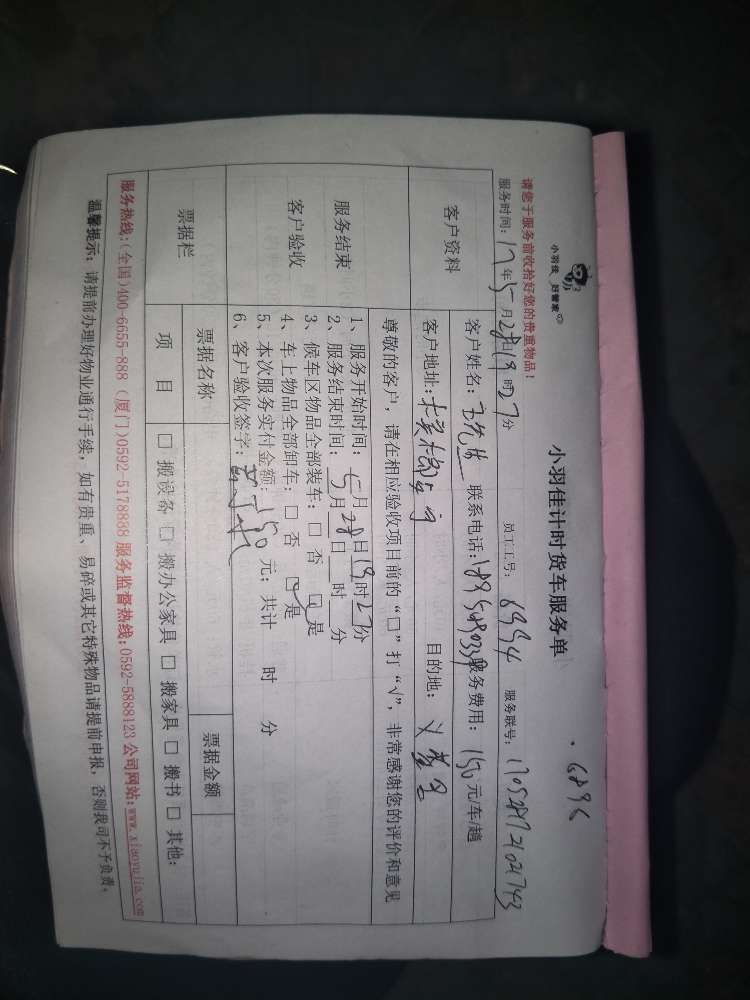 小羽佳 好管家
小羽佳计时货车服务单
请您于服务前收拾好您的贵重物品!
服务时间: 17年5月28日19时27分 员工工号: 6994 服务联号:
客户资料
客户姓名: 联系电话: 服务费用: 150元/车/趟
客户地址: 目的地:
尊敬的客户, 请在相应验收项目前的“□”打“√”, 非常感谢您的评价和意见
服务结束
客户验收
1、服务开始时间: 5月28日19时27分
2、服务结束时间: 5月28日 时 分
3、候车区物品全部装车: □ 否 ☑ 是
4、车上物品全部卸车: □ 否 ☑ 是
5、本次服务实付金额: 150元; 共计 时 分
6、客户验收签字:
票据栏
票据名称 票据金额
项 目 □ 搬设备 □ 搬办公家具 □ 搬家具 □ 搬书 □ 其他:
服务热线:(全国)400-6655-888 (厦门)0592-5178838 服务监督热线:0592-5888123 公司网站:www.xiaoyujia.com
温馨提示: 请提前办理好物业通行手续, 如有贵重、易碎或其它特殊物品请提前申报, 否则我司不予负责。